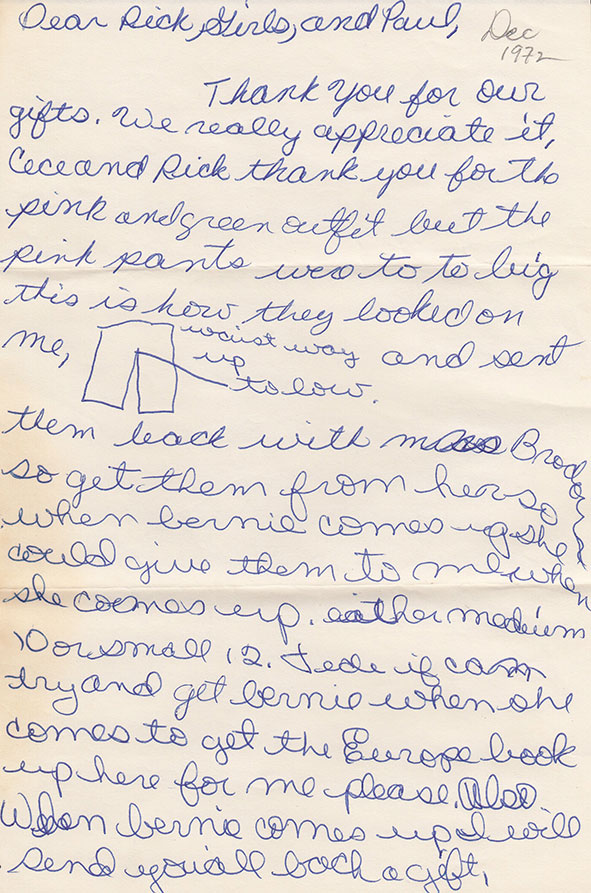 Dear Rick, Girls, and Paul,
Dec
1972
Thank you for our
gifts. We really appreciate it,
Cece and Rick thank you for the
pink and green outfit but the
pink pants was to to big
this is how they looked on
me,
waist way
up
to low.
and sent
them back with
so get them from her so
when bernie comes up she
could give them to me when
she comes up. eather medium
10 or small 12. if
try and get bernie when she
comes to get the Europe book
up here for me please. Also
When bernie comes up I will
send you all back a gift,